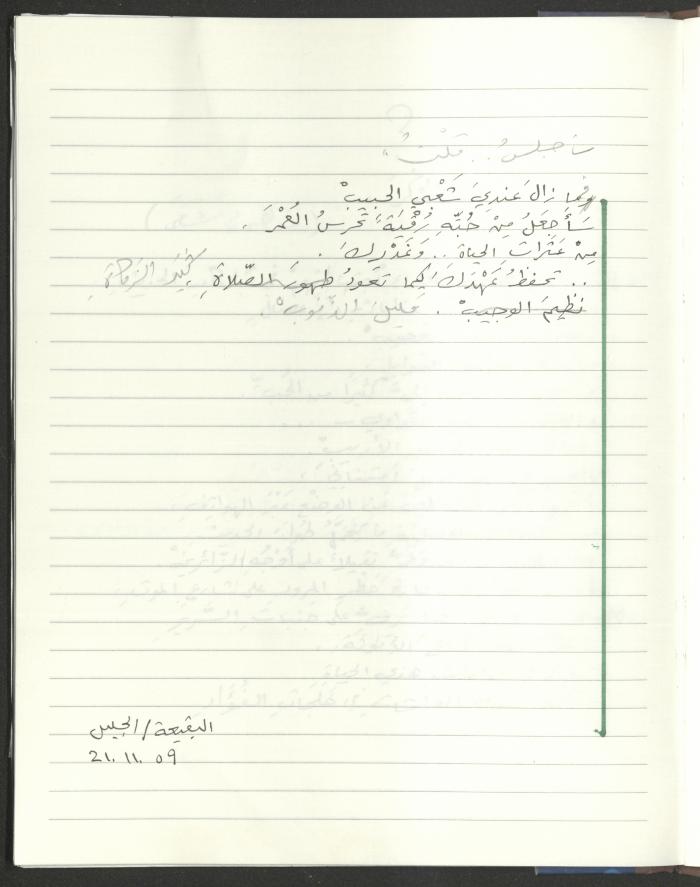 سأجلسُ.. قلتُ،
فما زال عنديَ شَعْبي الحبيبْ
سَأَجعَلُ مِنْ حُبِّهِ رُقْيَةً تَحرسُ العُمْرَ .
مِنْ عَثَراتِ الحياة .. وَغَدْرِكَ .
.. تحفظُ عَهْدَكَ كيما تعودُ طَهورَ الصّلاةِ كثيرَ الزكاةِ
نظيمَ الوجيبْ . قليلَ الذّنوبْ .
البقيعة/الجليل
21.11.09